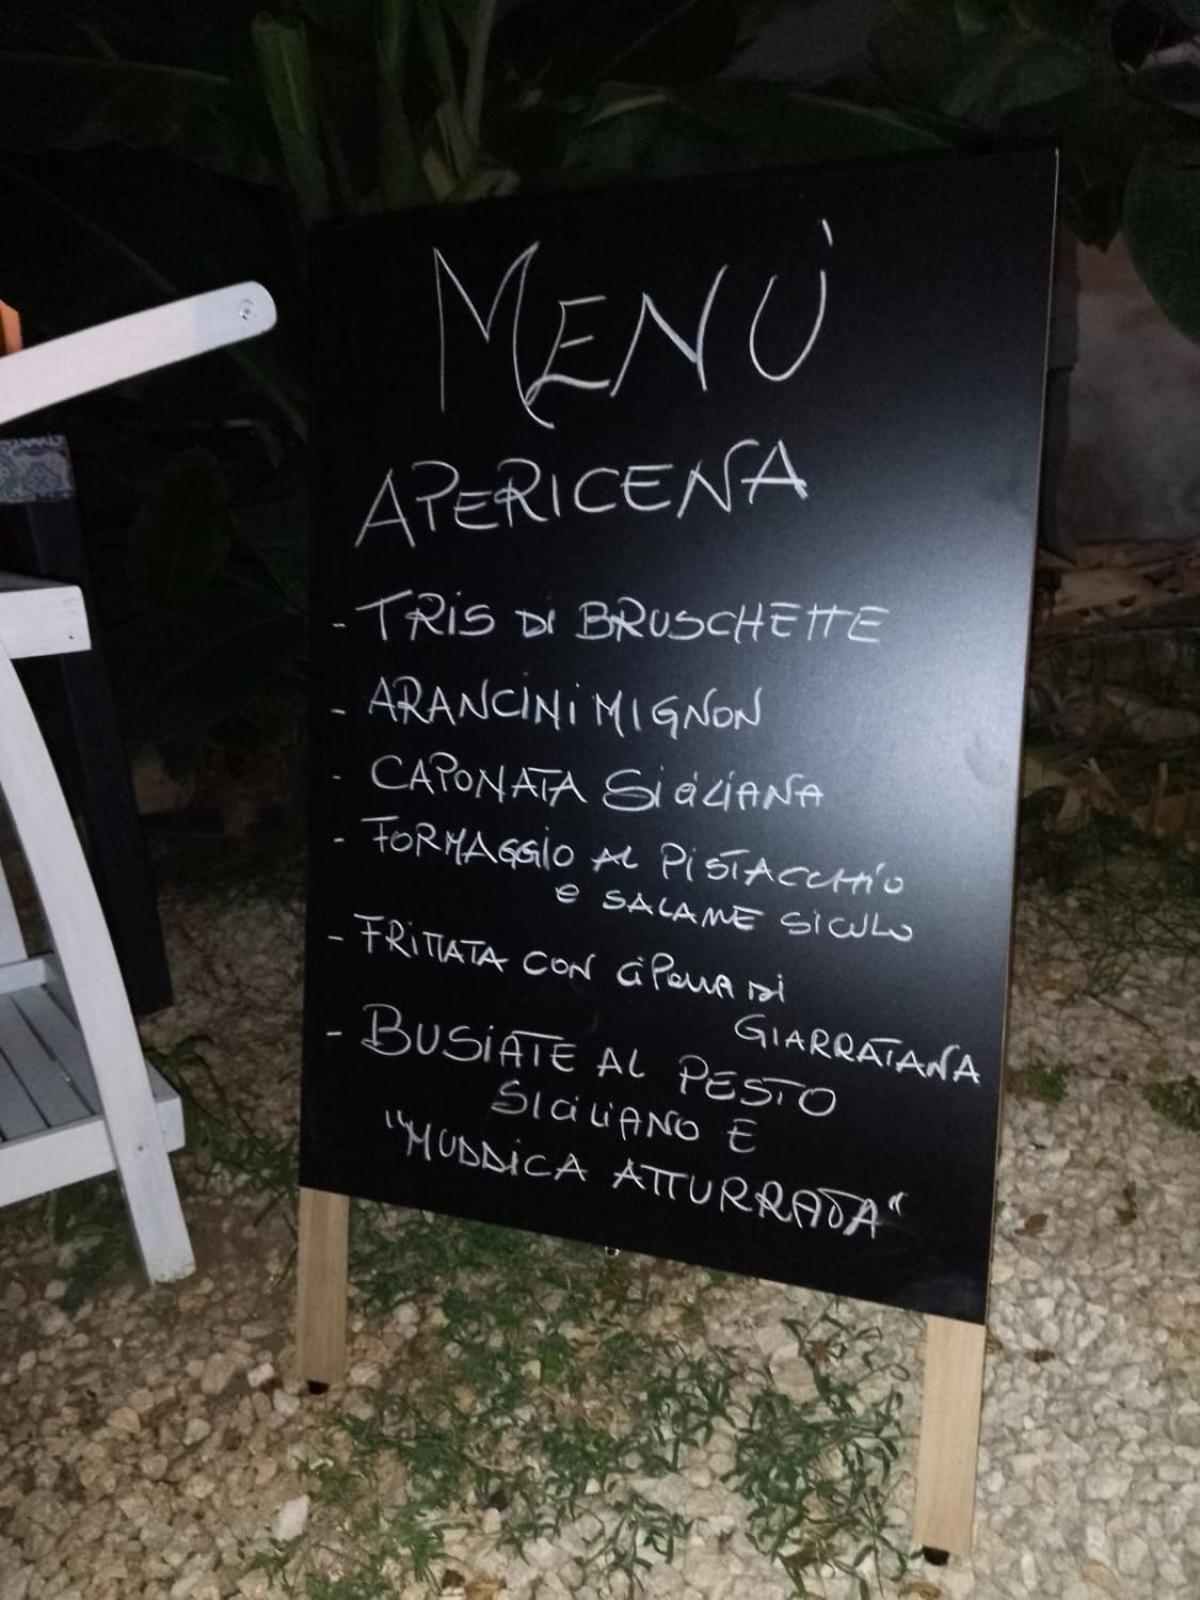 MENÙ
APERICENA
- TRIS DI BRUSCHETTE
- ARANCINI MIGNON
- CAPONATA SICILIANA
- FORMAGGIO AL PISTACCHIO
e SALAME SICULO
- FRITTATA CON CIPOLLA DI
GIARRATANA
- BUSIATE AL PESTO
SICILIANO E
"MUDDICA ATTURRATA"